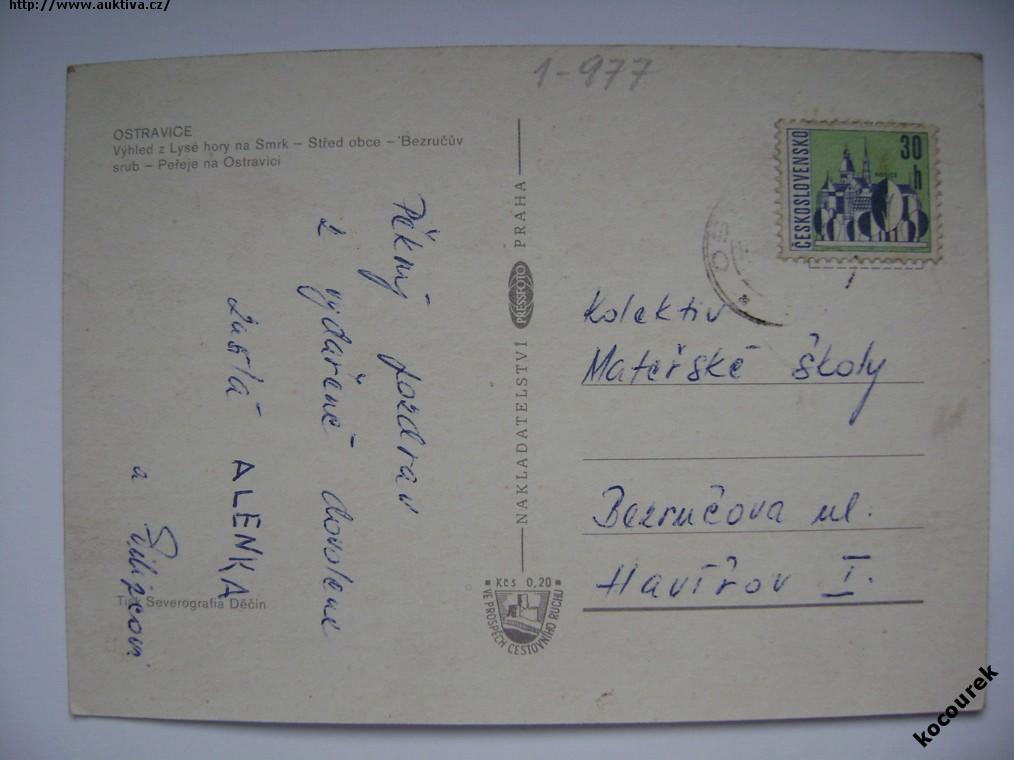 http://www.auktiva.cz/
1-977
OSTRAVICE
Výhled z Lysé hory na Smrk – Střed obce – Bezručův
srub – Peřeje na Ostravici
Pěkný pozdrav
z vydařené dovolené
zasílá ALENKA
a
Tisk Severografia Děčín
NAKLADATELSTVÍ PRESSFOTO PRAHA
Kčs 0,20
VE PROSPĚCH CESTOVNÍHO RUCHU
ČESKOSLOVENSKO
30
h
KOŠICE
OS
Kolektiv
Mateřské školy
Bezručova ul.
Havířov I.
kocourek